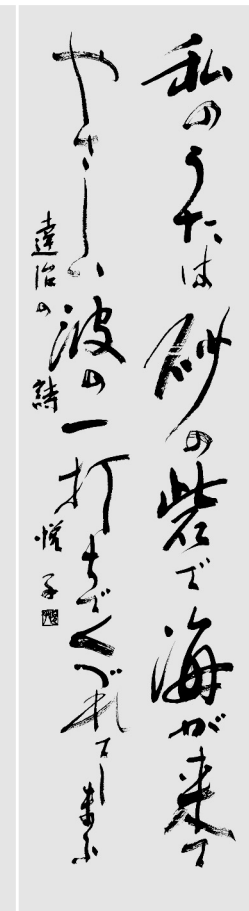 私のうたは砂の砦で海が来て
やさしい波の一打ちでくづれてしまふ
達治の詩 悦子